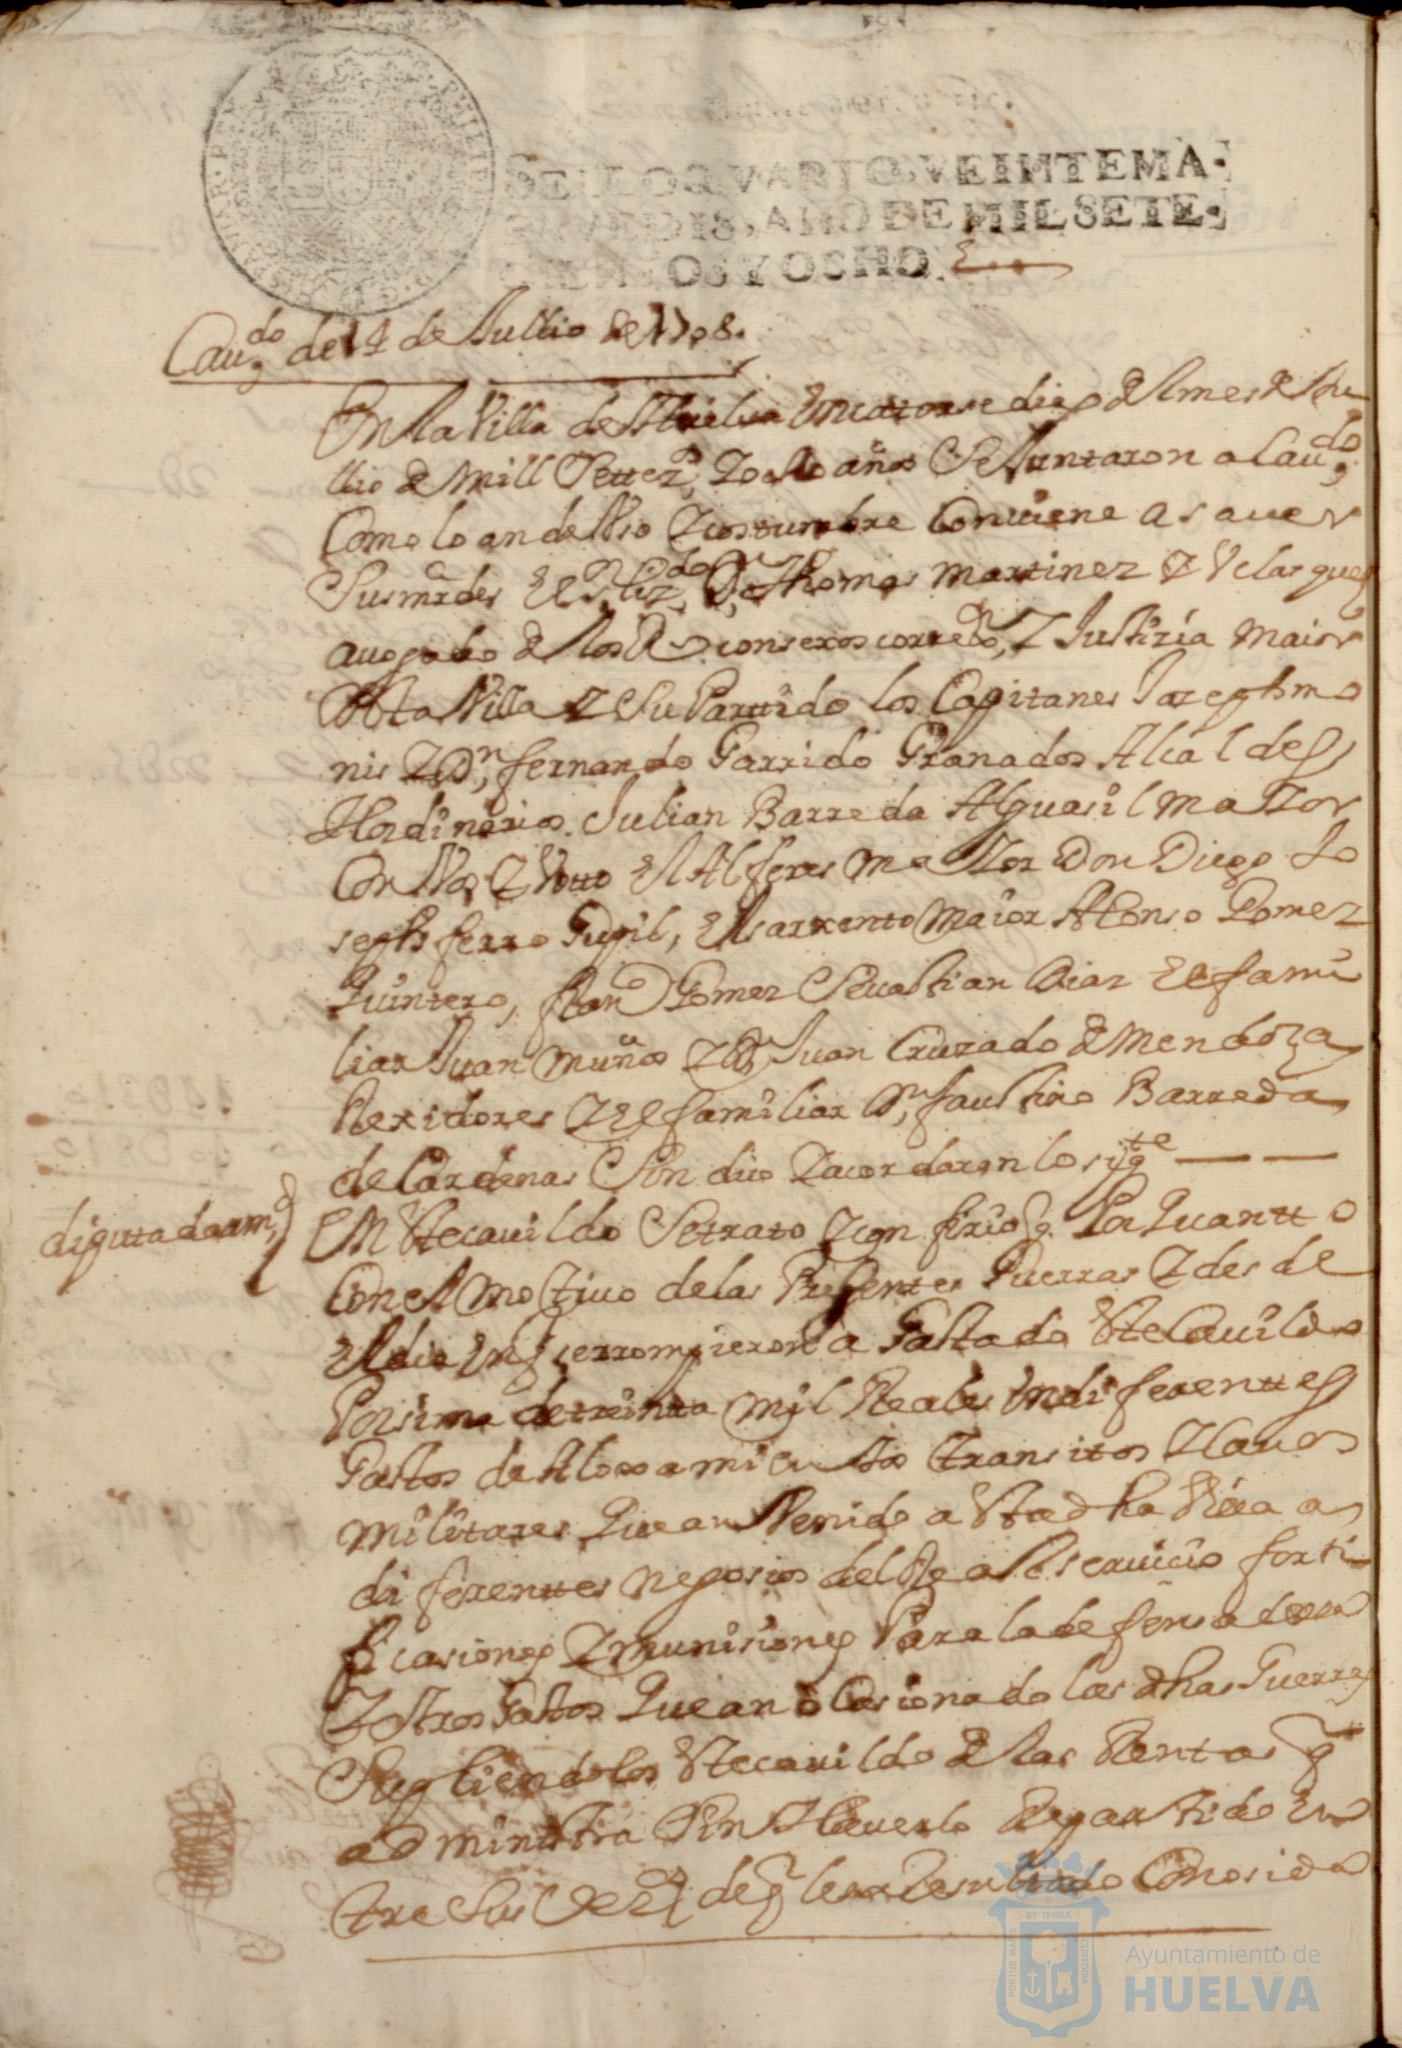 SELLO QVARTO, VEINTEMA-
RAVEDIS, AÑO DE MIL SETE-
CIENTOS Y OCHO.
Caudo de 14 de Jullio de 1708.
En la Villa de Huelva en catorse dias del mes de Ju
llio de mill Settezs y ocho años Se Juntaron a Caudo
Como lo an de Uso y costumbre Conviene a saver
Sus mrdes el Sr Lizdo Dn Thomas Martinez y Velasques
avogado de los Rs consexos corredor y Justizia maior
desta Villa y Su Partido los Capitanes Joseph
nis y Dn fernando Garrido Granados Alcaldes
Hordinarios Julian Barreda Alguasil maior
Con Vos y Votto el Alferes maior Don Diego Jo
seph ferro Gugil, el sarxento maior Alonso Gomez
Quintero, fran Gomez Sevastian Diaz el fami
liar Juan Muños y Dn Juan Cruzado de Mendoza
Rexidores y el familiar Dn faustino Barreda
de Cardenas Sindico y acordaron lo sigte
diputado a am
En Este cavildo Se trato y confirio q Por Quantto
Con el motivo de las Presentes Guerras y desde
el dia en q se rrompieron a Gastado Este Cavildo
Por sima de treintta mil Reales en diferenttes
Gastos de Aloxamientos transitos y Cavos
militares Que an Venido a Esta dha Villa a
diferenttes negosios del Real Servicio forti-
ficasiones y munisiones Para la defensa della
y otros Gastos Que an ocasionado las dhas Guerras
Supliendolos Este cavildo de las Rentas q
administra Sin Haverlo Repartido en
tre Sus Vezs de q le a Resultado Conosida
ET TERRÆ
PORTUS MARIS
CUSTODIA
Ayuntamiento de
HUELVA